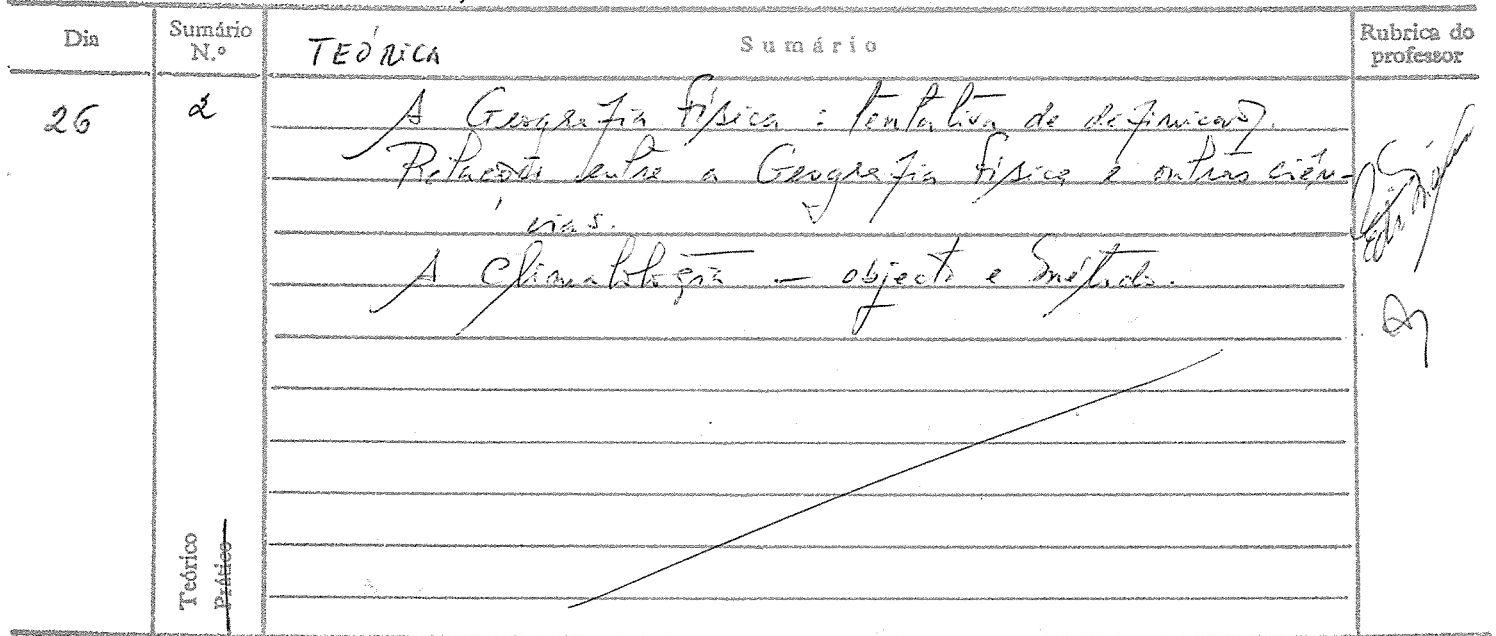 Dia
Sumário N.º
TEÓRICA
Sumário
Rubrica do professor
26
2
A Geografia física : tentativa de definição.
Relações entre a Geografia física e outras ciên-
cias.
A Climatologia — objecto e método.
Teórico
Prático